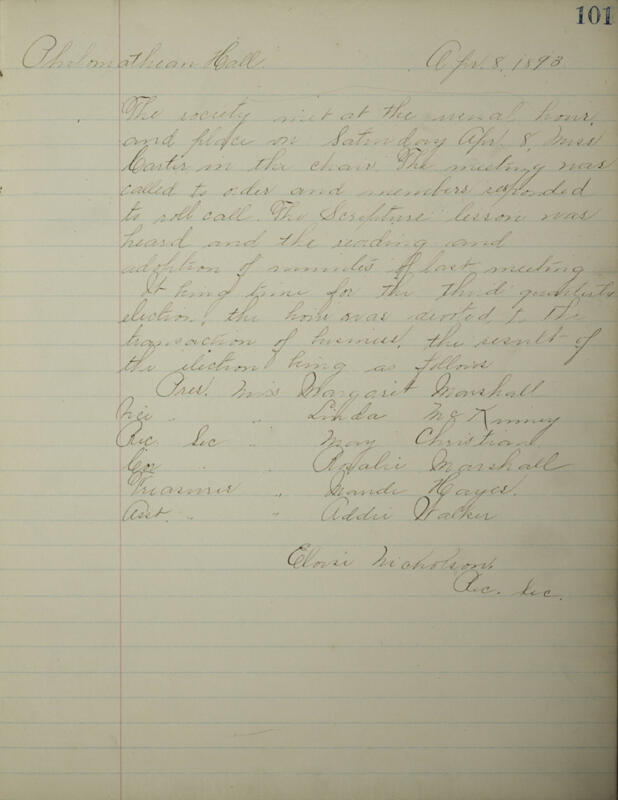 101
Philomathean Hall Apr. 8, 1893
The society met at the usual hour,
and place on Saturday Apr. 8, Miss
Carter in the chair. The meeting was
called to order and members responded
to roll call. The Scripture lesson was
heard and the reading and
adoption of minutes of last meeting
It being time for the third quarterly
election, the hour was devoted to the
transaction of business, the result of
the election being as follows
Pres. Miss Margaret Marshall
Vice " " Linda McKinney
Rec. Sec " May Christian
Cor " " Rosalie Marshall
Treasurer " Maude Hayes.
Asst. " " Addie Walker
Eloise Nicholson,
Rec. Sec.